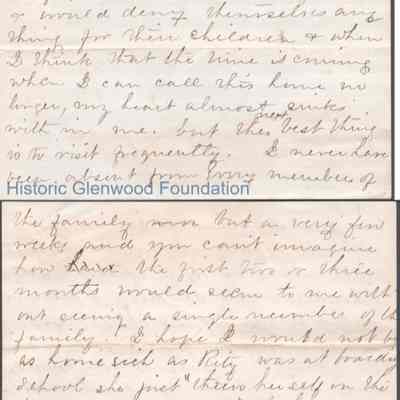 & would deny themselves any
thing for their children & when
I think that the time is coming
when I can call this home no
longer, my heart almost sinks
with in me. but the next best thing
is to visit frequently. I never have
been absent from every member of
Historic Glenwood Foundation
the family more but a very few
weeks and you cant imagine
how the first two or three
months would seem to me with
out seeing a single member of th
family. I hope I would not b
as home sick as was at boardi
School she just "threw herself on the